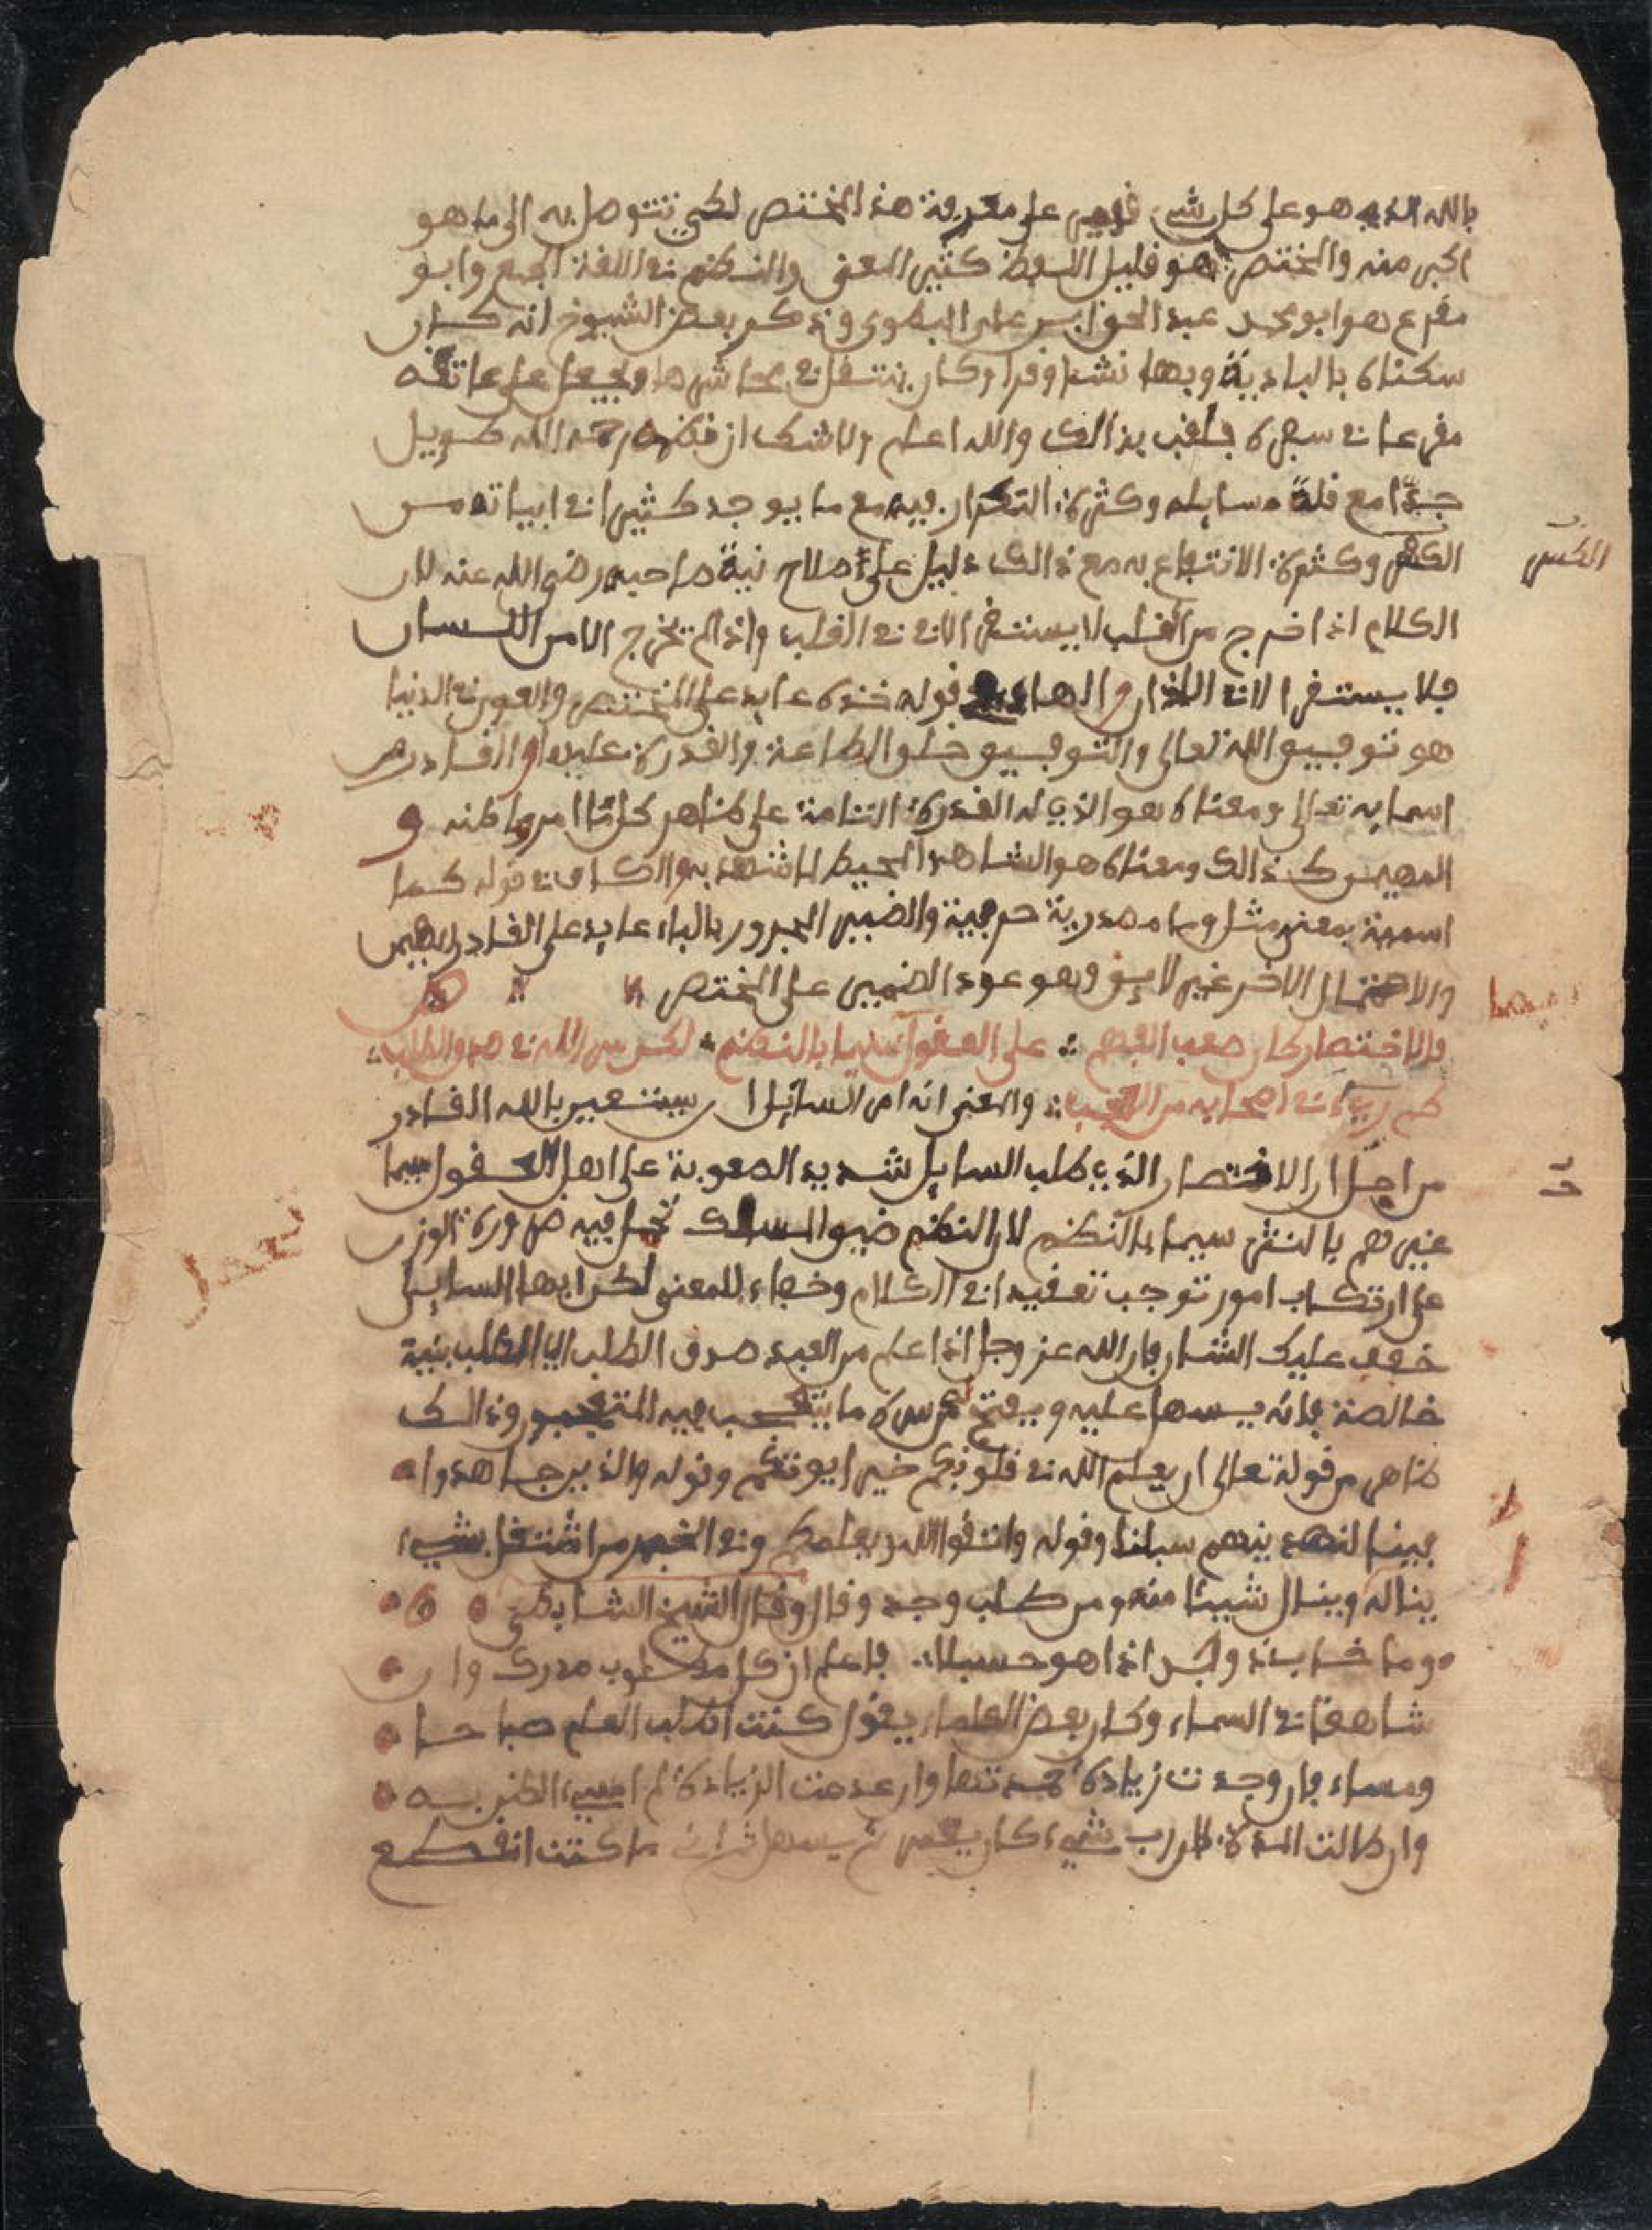 بالله الذي هو على كل شيء قدير على معرفة هذا المختصر لكي تتوصل به الى ما هو
اكبر منه والمختصر هو قليل اللفظ كثير المعنى والنظم في اللغة الجمع وابو
مقرع هو ابو محمد عبد الحق بن علي البطوي وذكر بعض الشيوخ انه كان
سكناه بالبادية وبها نشا وقرا وكان يتنقل في مداشرها ويجعل على عاتقه
مقرعا في سفره فلقب بذالك والله اعلم ولا شك ان نظمه رحمه الله طويل
جدّا مع قلة مسايله وكثرة التكرار فيه مع ما يوجد كثيرا في ابياته من
الكسر وكثرة الانتفاع به مع ذالك دليل على صلاح نية صاحبه رضي الله عنه لان
الكسر
الكلام اذا خرج من القلب لا يستقر الا في القلب واذا لم يخرج الا من اللسان
فلا يستقر الا في الاذان والهاء في قوله خذه عايد على المختصر والعون في الدنيا
هو توفيق الله تعالى والتوفيق خلق الطاعة والقدرة عليها والقادر من
اسمايه تعالى ومعناه هو الذي له القدرة التامة على ظاهر كل امر وباطنه و
المهيمن كذالك ومعناه هو الشاهد المحيط لما شهد به والكاف في قوله كما
اسمية بمعنى مثل وما مصدرية حرفية والضمير المجرور بالباء عايد على القادر المهيمن
والاحتمال الاخر غير لايق وهو عود الضمير على المختصر
والاختصار كل صعب الفهم على العقول سيما بالنظم لكن من الله في صدق الطلب
كم رءي في اصحابه من العجب والمعنى انه امر السائل ان يستعين بالله القادر
من اجل ان الاختصار الذي طلب السايل شديد الصعوبة على اهل العقول سيما
غيرهم بالنثر سيما بالنظم لان النظم ضيق المسلك تحمل فيه ضرورة الوزن
على ارتكاب امور توجب تعقيدا في الكلام وخفاء للمعنى لكن ايها السايل
خفف عليك الشان فان الله عز وجل اذا علم من العبد صدق الطلب اي الطلب بنية
خالصة فانه يسهل عليه ويفتح عن سره ما يتعجب فيه المتعجبون وذالك
ظاهر من قوله تعالى ان يعلم الله في قلوبكم خيرا يوتكم وقوله والذين جاهدوا
فينا لنهدينهم سبلنا وقوله واتقوا الله ويعلمكم وفي الخبر من اشتغل بشيء
يناله وينال شيئا منه ومن طلب وجد وقال وقال الشيخ الشاطبي
وما خاب ذو جد اذا هو حسبلا فاعلم ان كل مطلوب مدرك وان
شاهقا في السماء وكان بعض العلماء يقول كنت اطلب العلم صباحا
ومساء فان وجدت زيادة حمدتها وان عدمت الزيادة لم اسيء الظن به
وان طالت المدة لان رب شيء كان يعسر ثم يسهل ما كنت انقطع